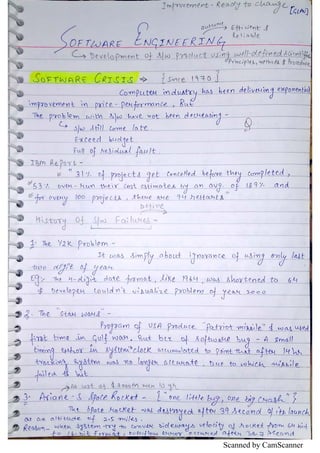 Improvement - Ready to change [CLAN]
outcome → Efficient & Reliable
SOFTWARE ENGINEERING
→ Development of S/w product using well-defined scientific principles, methods & procedures
SOFTWARE CRISIS → [Since 1970]
Computer industry has been delivering exponential
improvement in price-performance, But
The problem with S/w have not been decreasing -
S/w still come late
Exceed budget
Full of residual fault
IBM Report -
"31% of projects get cancelled before they completed,
53% over-run their cost estimates by an avg. of 189% and
for every 100 projects, there are 94 restarts"
History Of S/w Failures -
1. The Y2K Problem -
It was simply about ignorance of using only last
two digits of year
Eg:- The 4-digit date format, like 1964, was shortened to 64
& Developer couldn't visualize problem of year 2000
2. The "STAR WARS" -
Program of USA produce "Patriot missile" & was used
first time in Gulf war, But bcz of software bug - A small
timing error in system clock accumulated to point that after 14 hr.
tracking system was no longer accurate. Due to which missile
failed to hit.
→ At cost of $ 7000M over 10 yr
3. Ariane-5 Space Rocket - {"one little bug, one big crash"}
The space rocket was destroyed after 39 second of its launch,
at an altitude of 2.5 miles.
Reason - when system try to convert sideways velocity of rocket from 64 bit
to 16-bit format, overflow error occurred after 36.7 second
Scanned by CamScanner